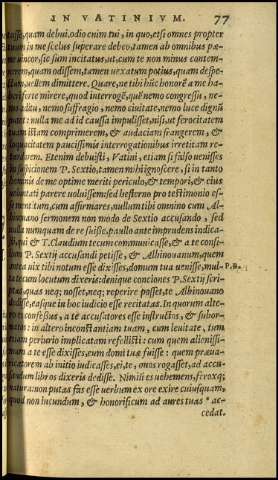 IN VATINIVM. 77
tasse, quam debui. odio enim tui, in quo, etsi omnes propter
tuum in me scelus superare debeo, tamen ab omnibus pæ-
ne uincor, sic sum incitatus, ut, cum te non minus contem-
nerem, quam odissem, tamen uexatum potius, quam despe-
ctum uellem dimittere. Quare, ne tibi hūc honorē a me ha-
beri forte mirere, quod interrogē, quē nemo congressu, ne-
mo aditu, nemo suffragio, nemo ciuitate, nemo luce dignū
putet: nulla me ad id caussa impulisset, nisi, ut ferocitatem
tuam istam comprimerem, & audaciam frangerem, &
loquacitatem paucissimis interrogationibus irretitam re-
tardarem. Etenim debuisti, Vatini, etiam si falso uenisses
in suspicionem P. Sextio, tamen mihi ignoscere, si in tanto
hominis de me optime meriti periculo, & tempori, & eius
uoluntati parere uoluissem: sed hesterno pro testimonio es-
se mentitum, cum affirmares, nullum tibi omnino cum Al-
binouano sermonem non modo de Sextio accusando, sed
nulla unquam de re fuisse, paullo ante imprudens indica-
sti, qui & T. Claudium tecum communicasse, & a te consi-
lium P. Sextij accusandi petisse, & Albinouanum, quem
antea uix tibi notum esse dixisses, domum tuam uenisse, mul- P. B.
ta tecum locutum dixeris: denique conciones P. Sextij scri-
ptas, quas neq; nosset, neq; reperire posset, te Albinouano
dedisse, easque in hoc iudicio esse recitatas. In quorum alte-
ro es confessus, a te accusatores esse instructos, & subor-
natos: in altero inconstantiam tuam, cum leuitate, tum
etiam periurio implicatam refellisti: cum quem alienissi-
mum a te esse dixisses, eum domi tuæ fuisse: quem præua-
ricatorem ab initio iudicasses, ei te, quos rogasset, ad accu-
sandum libros dixeris dedisse. Nimiū es uehemens, feroxq;
natura: non putas fas esse uerbum ex ore exire cuiusquam,
quod non iucundum, & honorificum ad aures tuas * ac-
cedat.